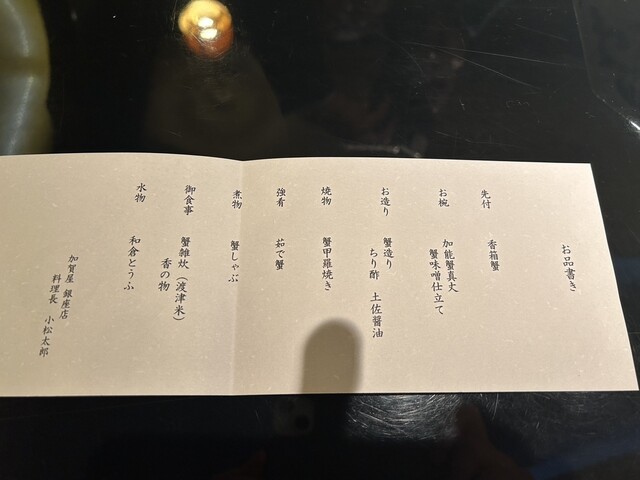 お品書き
先付 香箱蟹
お椀 加能蟹真丈
蟹味噌仕立て
お造り 蟹造り
ちり酢 土佐醤油
焼物 蟹甲羅焼き
強肴 茹で蟹
煮物 蟹しゃぶ
御食事 蟹雑炊(渡津米)
香の物
水物 和倉とうふ
加賀屋 銀座店
料理長 小松太郎